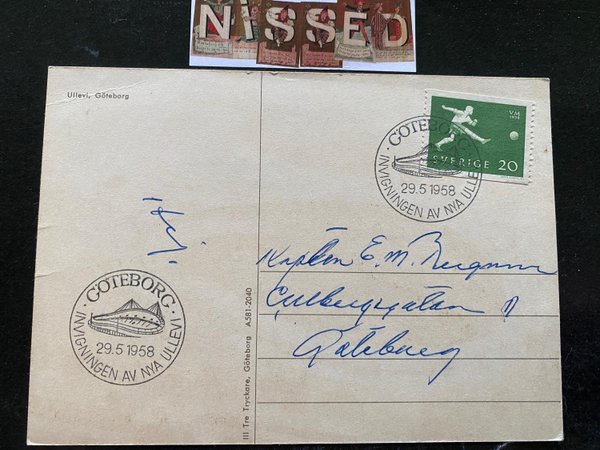 NISSED
Ullevi, Göteborg
VM
1958
SVERIGE 20
· GÖTEBORG ·
29.5 1958
INVIGNINGEN AV NYA ULLEVI
Kapten E. M.
Göteborg
· GÖTEBORG ·
29.5 1958
INVIGNINGEN AV NYA ULLEVI
III Tre Tryckare, Göteborg A581-2040